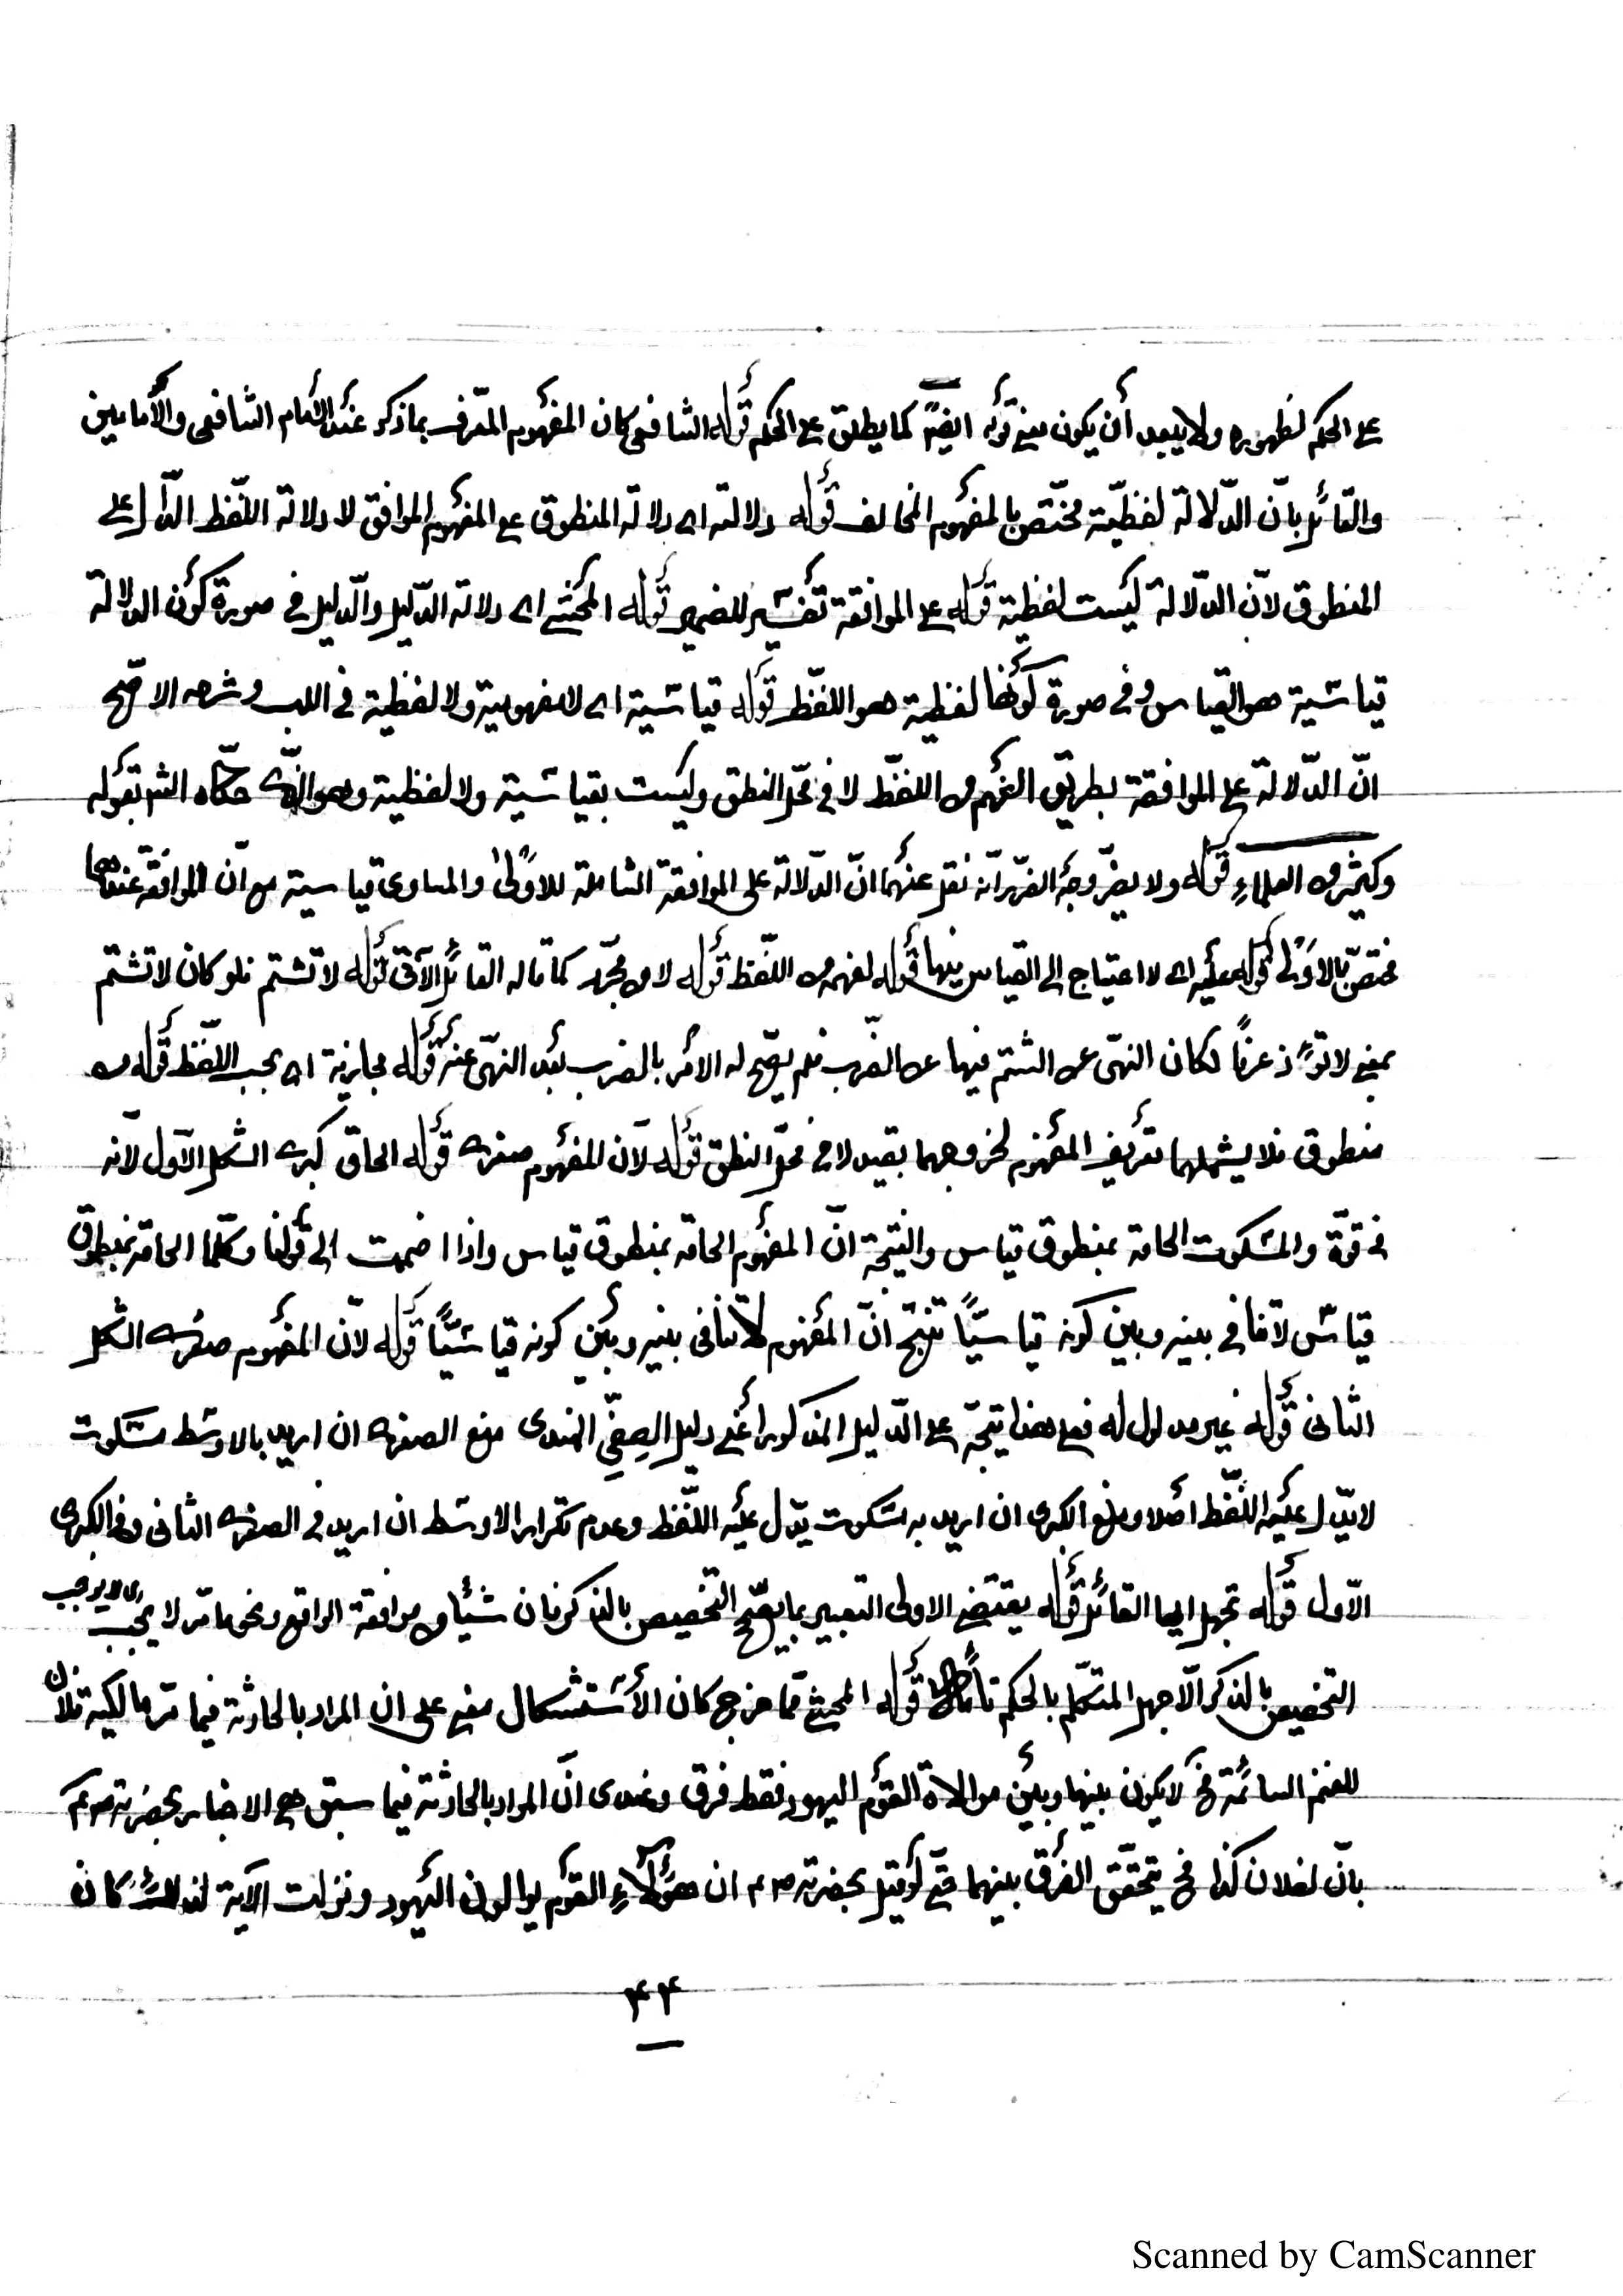 على الحكم لظهوره ولا يبعد أن يكون مبنى قوله ايضًا كما يطلق على الحكم قوله الشافعى كان المفهوم المعرف بما ذكر عند الامام الشافعى والأمامين
والقائل بانّ الدّلالة لفظيّة مختصّ بالمفهوم المخالف قوله دلالته اى دلالة المنطوق على المفهوم الموافق لا دلالة اللّفظ الدّال على
المنطوق لانّ الدّلالة ليست لفظية قوله على الموافقة تفسير للضمير قوله المحشى اى دلالة الدّليل والدّليل فى صورة كون الدلالة
قياسية هو القياس وفى صورة كونها لفظية هو اللفظ قوله قياسية اى لا مفهومية ولا لفظية فى اللب وشرحه الاصحّ
انّ الدّلالة على الموافقة بطريق الفهم من اللفظ لا فى محلّ النطق وليست بقياسية ولا لفظية وهو الذى حكاه الش بقوله
وكثير من العلماء قوله ولا يضرّ وجه الضرّ انّه نقل عنهما انّ الدّلالة على الموافقة الشاملة للاولى والمساوى قياسية مع انّ الموافقة عندهما
مختصّ بالاولى قوله عليه اى لا احتياج الى القياس فيها قوله لفهمه من اللّفظ قوله لا من مجرّد كما قاله القائل الآتى قوله لا تشتم فلو كان لا تشتم
بمعنى لا تؤذ عرفًا لكان النهى عن الشتم نهيا عن الضرب فلم يصحّ له الأمر بالضرب بعد النهى عنه قوله مجازية اى بحسب اللّفظ قوله من
منطوق فلا يشملهما تعريف المفهوم لخروجهما بقيد لا فى محلّ النطق قوله لانّ المفهوم صغرى قوله الحاق كبرى الشكل الاوّل لانّه
فى قوّة والمسكوت الحاقه بمنطوق قياس والنتيجة انّ المفهوم الحاقه بمنطوق قياس واذا ضممت الى قولنا وكلّما الحاقه بمنطوق
قياس لا تنافى بينه وبين كونه قياسيًّا تنتج انّ المفهوم لا تنافى بينه وبين كونه قياسيًّا قوله لانّ المفهوم صغرى الشكل
الثانى قوله غير مدلول له فعلى هذا يتجّه على الدّليل المذكور أعنى دليل الصفى الهندى منع الصغرى ان اريد بالاوسط مسكوت
لا يدّل عليه اللّفظ اصلا ومنع الكبرى ان اريد به مسكوت يدّل عليه اللّفظ وعدم تكرار الاوسط ان اريد فى الصغرى الثانى وفى الكبرى
الاوّل قوله تجهل ايها القائل قوله يقتضى الاولى التعبير بما يصحّ التخصيص بالذكر فان شيئا من موافقة الواقع ونحو ما مّر لا يجب اى لا يوجب
التخصيص بالذكر الّا جهل المتكلّم بالحكم تأمّل قوله المحيث ممّا خرج كان الأستشكال مبنى على ان المراد بالحادثة فيما مّر مالكية فلان
للغنم السائمة فح لا يكون بينها وبين موالاة القوم اليهود فقط فرق وعندى انّ المراد بالحادثة فيما سبق هى الاخبار بحضرته
بانّ لفلان كذا فح يتحقّق الفرق بينهما حتّى لو قيل بحضرته ان هؤلاء القوم يوالون اليهود ونزلت الآية لذلك كان
٤٤
Scanned by CamScanner